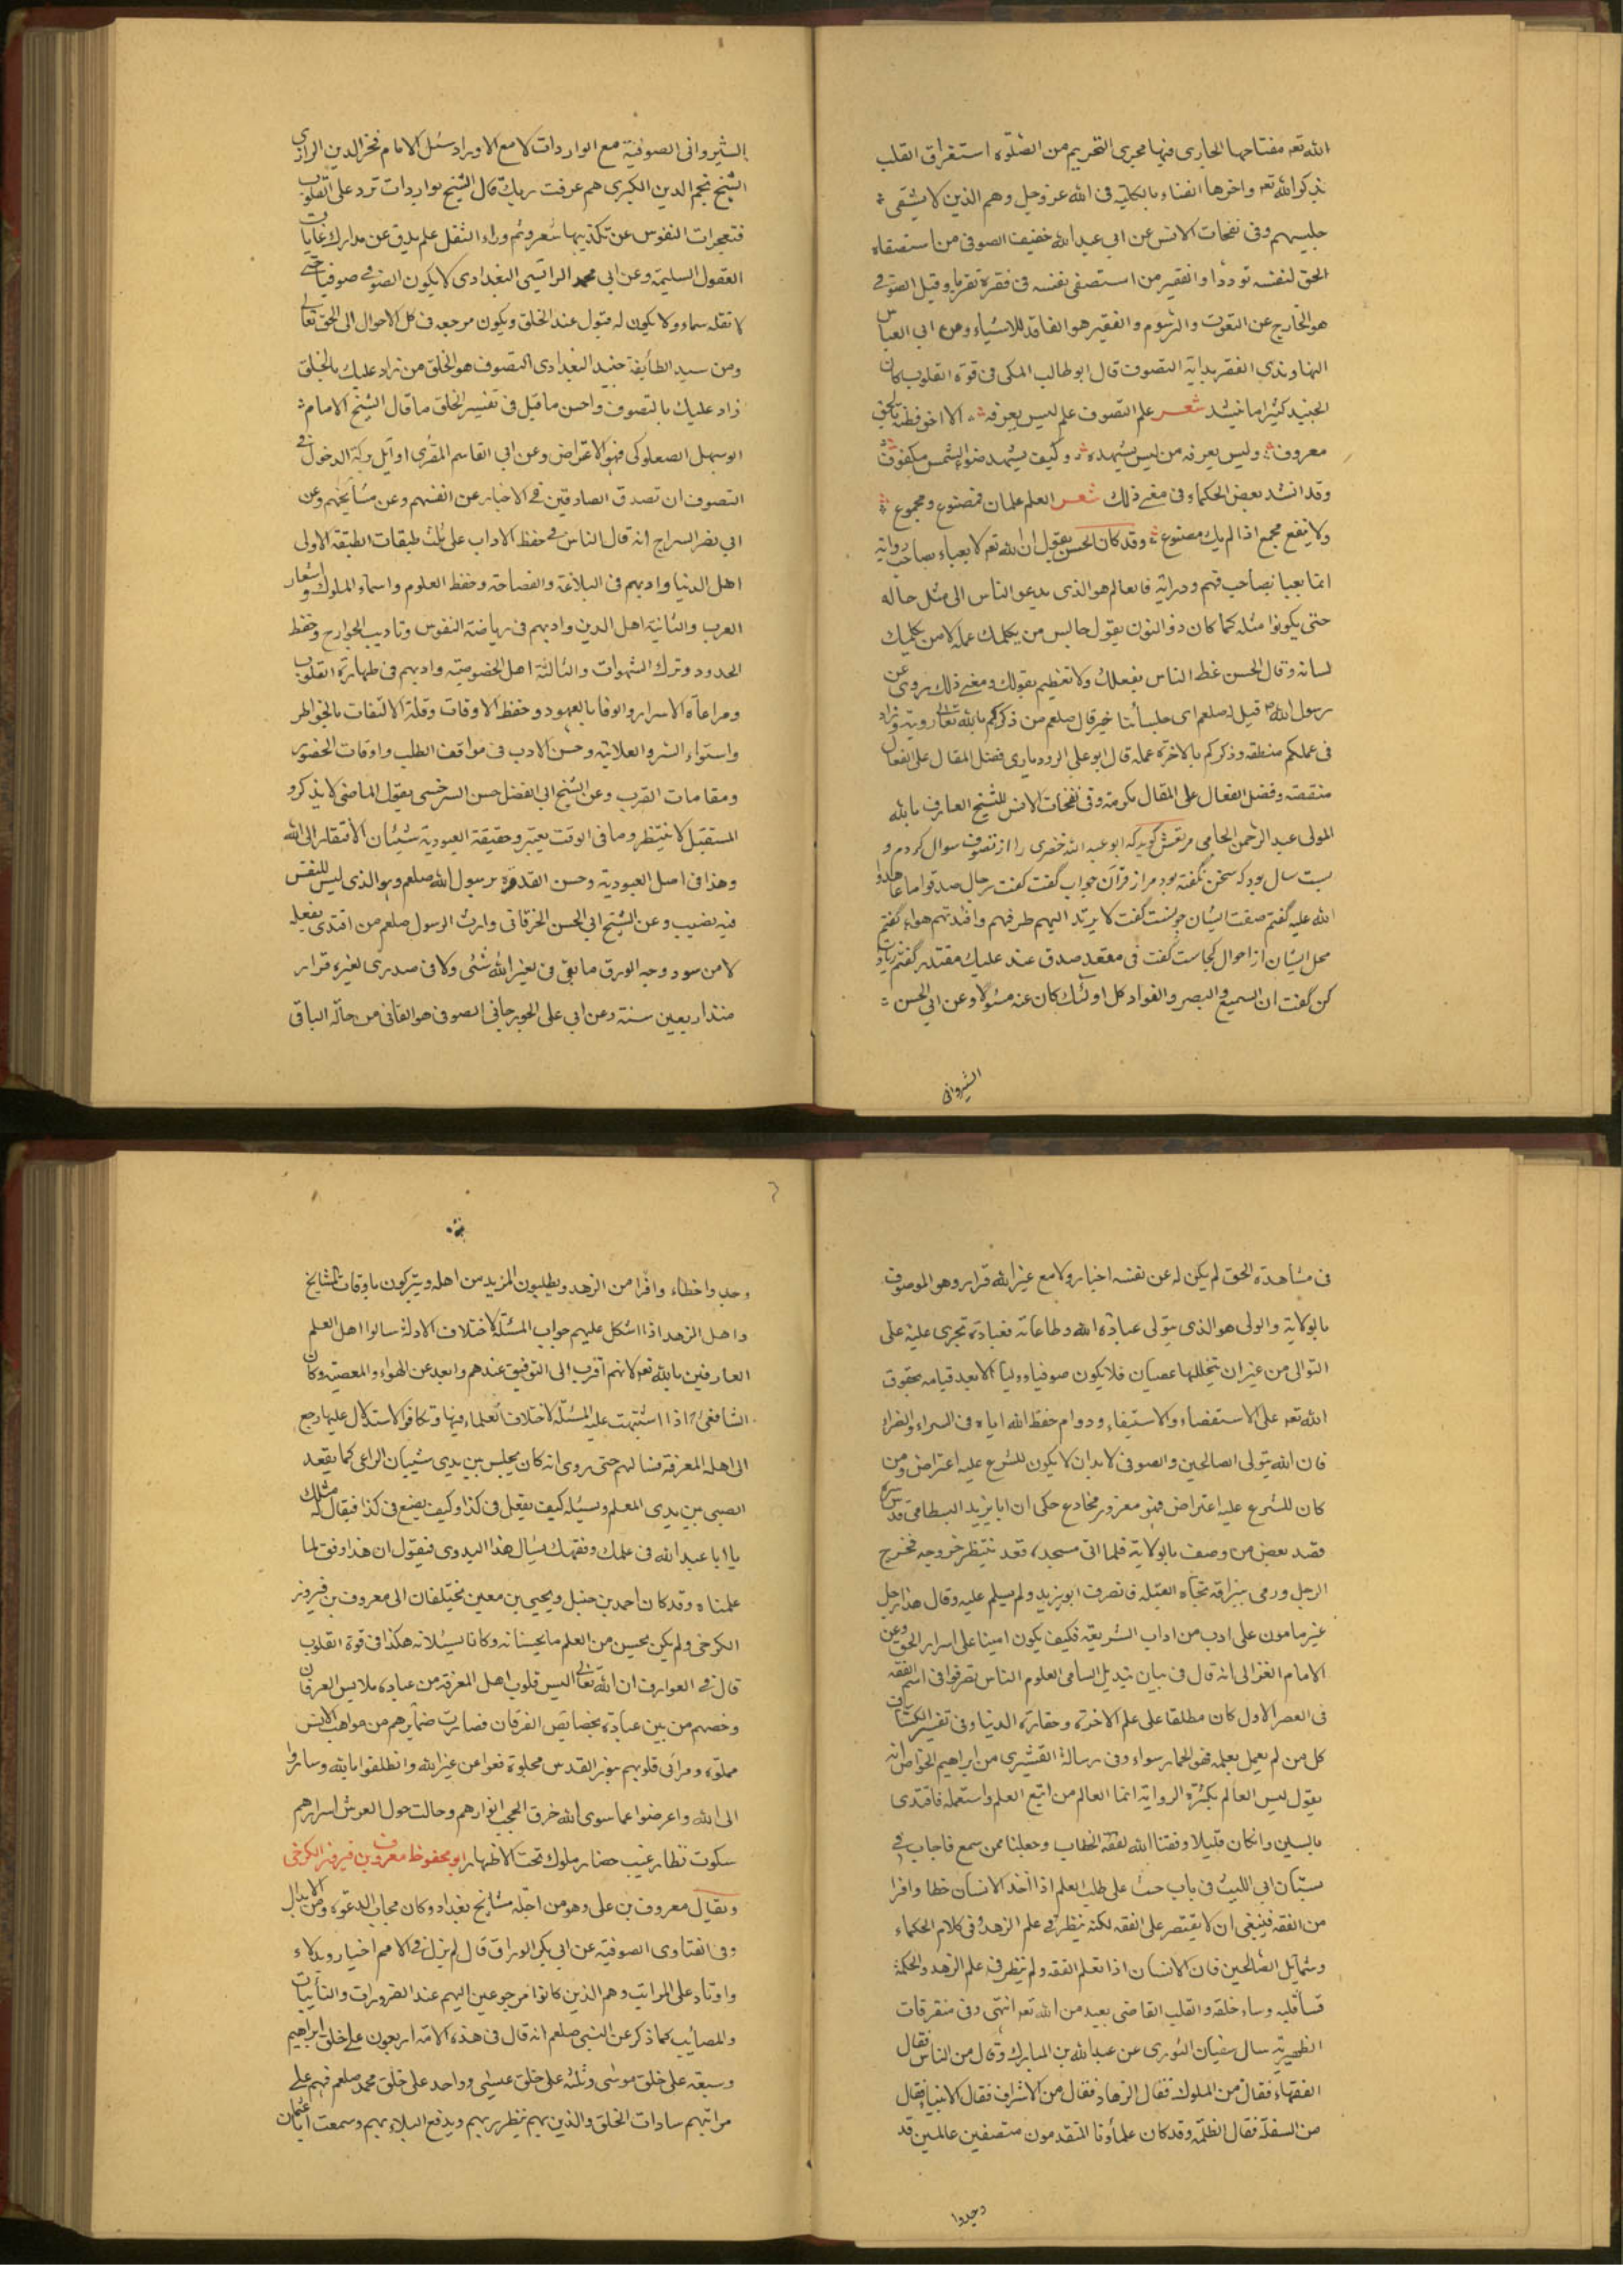 الله تعه مفتاحها الجارى فيها مجرى التحريم من الصلوة استغراق القلب
بذكر الله تعه واخرها الفناء بالكلية فى الله عز وجل وهم الذين لا يشقى
جليسهم وفى نفحات الانس عن ابى عبد الله خفيف الصوفى من استصفاه
الحق لنفسه توددا والفقير من استصفى نفسه فى فقره تقربا وقيل الصوفى
هو الخارج عن النعوت والرسوم والفقير هو الفاقد للاشياء ومن ابى العباس
النهاوندى الفقر بداية التصوف قال ابو طالب المكى فى قوة القلوب كان
الجنيد كثيرا ما ينشد شعر علم التصوف علم ليس يعرفه الا اخو فطنة بالحق
معروف وليس يعرفه من ليس يشهده وكيف يشهد ضوء الشمس مكفوف
وقد انشد بعض الحكماء وفى معنى ذلك شعر العلم علمان فمصنوع ومجموع
ولا ينفع مجمع اذا لم يك مصنوع وقد كان الحسن يقول ان الله تعه لا يعباء بصاحب رواية
انما يعبا بصاحب فهم ودراية فالعالم هو الذى يدعو الناس الى مثل حاله
حتى يكونوا مثله كما كان ذو النون يقول جالس من يكلمك عمله لا من يكلمك
لسانه وقال الحسن عظ الناس بفعلك ولا تعظهم بقولك ومعنى ذلك يروى عن
رسول الله قيل له صلعم اى جلسائنا خير قال صلعم من ذكركم بالله تعالى رويته وزاد
فى عملكم منطقه وذكركم بالاخرة عمله قال ابو على الرودبارى فضل المقال على الفعال
منقصة وفضل الفعال على المقال مكرمة وفى نفحات الانس للشيخ العارف بالله
المولى عبد الرحمن الجامى مرتعش كويد كه ابو عبد الله خضرى را از تصوف سوال كردم و
بيست سال بود كه سخن نگفته بود مرا از قرآن جواب گفت گفت رجال صدقوا ما عاهدوا
الله عليه گفتم صفت ايشان چونست گفت لا يرتد اليهم طرفهم وافئدتهم هواء گفتم
محل ايشان از احوال كجاست گفت فى مقعد صدق عند مليك مقتدر گفتم زيادت
كن گفت ان السمع والبصر والفواد كل اولئك كان عنه مسئولا وعن ابى الحسن
الشيروانى
الشيروانى الصوفية مع الواردات لا مع الاوراد سئل الامام فخر الدين الرازى
الشيخ نجم الدين الكبرى بم عرفت ربك قال الشيخ بواردات ترد على القلوب
فتعجزات النفوس عن تكذيبها شعر وثم وراء النقل علم يدق عن مدارك غايات
العقول السليمة وعن ابى محمد الراسبى البغدادى لا يكون الصوفى صوفيا حتى
لا تقله سماء ولا يكون له قبول عند الخلق ويكون مرجعه فى كل الاحوال الى الحق تعالى
ومن سيد الطائفة جنيد البغدادى التصوف هو الخلق من زاد عليك بالخلق
زاد عليك بالتصوف واحسن ما قيل فى تفسير الخلق ما قال الشيخ الامام
ابو سهل الصعلوكى فهو الاعراض وعن ابى القاسم المقرى اوائل بركة الدخول فى
التصوف ان تصدق الصادقين فى الاخبار عن انفسهم وعن مشايخهم وعن
ابى نصر السراج انه قال الناس فى حفظ الاداب على ثلث طبقات الطبقة الاولى
اهل الدنيا وادبهم فى البلاغة والفصاحة وحفظ العلوم واسماء الملوك واشعار
العرب والثانية اهل الدين وادبهم فى رياضة النفوس وتاديب الجوارح وحفظ
الحدود وترك الشهوات والثالثة اهل الخصوصية وادبهم فى طهارة القلوب
ومراعاة الاسرار والوفا بالعهود وحفظ الاوقات وقلة الالتفات بالخواطر
واستواء السر والعلانية وحسن الادب فى مواقف الطلب واوقات الحضور
ومقامات القرب وعن الشيخ ابى الفضل حسن السرخسى يقول الماضى لا يذكر و
المستقبل لا ينتظر وما فى الوقت يعتبر وحقيقة العبودية شيئان الافتقار الى الله
وهذا فى اصل العبودية وحسن القدوة برسول الله صلعم وهو الذى ليس للنفس
فيه نصيب وعن الشيخ ابى الحسن الخرقانى وارث الرسول صلعم من اقتدى بفعله
لا من سود وجه الورق ما بقى فى لغير الله شئى ولا فى صدرى لغيره قرار
منذ اربعين سنة وعن ابى على الجوزجانى الصوفى هو الفانى من حاله الباقى
فى مشاهدة الحق لم يكن له عن نفسه اخبار ولا مع غير الله قرار وهو الموصوف
بالولاية والولى هو الذى يتولى عبادة الله وطاعاته فعبادته تجرى عليه على
التوالى من غير ان يتخللها عصيان فلا يكون صوفيا ووليا الا بعد قيامه بحقوق
الله تعه على الاستقصاء والاستيفاء ودوام حفظ الله اياه فى السراء والضراء
فان الله يتولى الصالحين والصوفى لا بد ان لا يكون للشرع عليه اعتراض ومن
كان للشرع عليه اعتراض فهو مغرور مخادع حكى ان ابا يزيد البسطامى قدس سره
قصد بعض من وصف بالولاية فلما اتى مسجده قعد ينتظر خروجه فخرج
الرجل ورمى ببزاقه تجاه القبلة فانصرف ابو يزيد ولم يسلم عليه وقال هذا رجل
غير مامون على ادب من اداب الشريعة فكيف يكون امينا على اسرار الحق وعن
الامام الغزالى انه قال فى بيان تبديل اسامى العلوم الناس تصرفوا فى اسم الفقه
فى العصر الاول كان مطلقا على علم الاخرة وحقارة الدنيا وفى تفسير الكشاف
كل من لم يعمل بعلمه فهو والحمار سواء وفى رسالة القشيرى من ابراهيم الخواص انه
يقول ليس العالم بكثرة الرواية انما العالم من اتبع العلم واستعمله فاقتدى
بالسنن وان كان قليلا وفقنا الله لفقه الخطاب وجعلنا ممن سمع فاجاب فى
بستان ابى الليث فى باب حث على طلب العلم اذا اخذ الانسان حظا وافرا
من الفقه فينبغى ان لا يقتصر على الفقه لكنه ينظر فى علم الزهد وفى كلام الحكماء
وشمائل الصالحين فان الانسان اذا تعلم الفقه ولم ينظر فى علم الزهد والحكمة
قسا قلبه وساء خلقه والقلب القاسى بعيد من الله تعه انتهى وفى متفرقات
الظهيرية سال سفيان الثورى عن عبد الله بن المبارك وقال من الناس فقال
الفقهاء فقال من الملوك فقال الزهاد فقال من الاشراف فقال الاتقياء فقال
من السفلة فقال الظلمة وقد كان علماؤنا المتقدمون متصفين عالمين قد
وجدوا
وجدوا حظاء وافرا من الزهد ويطلبون المزيد من اهله ويتبركون باوقات المشايخ
واهل الزهد اذا اشكل عليهم جواب المسئلة لاختلاف الادلة سالوا اهل العلم
العارفين بالله تعه لانهم اقرب الى التوفيق عندهم وابعد عن الهواء والمعصية وكان
الشافعى اذا اشتبهت عليه المسئلة لاختلاف العلماء فيها وتكافؤ الاستدلال عليها رجع
الى اهل المعرفة فسالهم حتى روى انه كان يجلس بين يدى شيبان الراعى كما يقعد
الصبى بين يدى المعلم ويسئله كيف يفعل فى كذا وكيف يصنع فى كذا فيقال له مثلك
يا ابا عبد الله فى علمك وفقهك يسال هذا البدوى فيقول ان هذا وفق لما
علمناه وقد كان احمد بن حنبل ويحيى بن معين يختلفان الى معروف بن فيروز
الكرخى ولم يكن يحسن من العلم ما يحسنانه وكانا يسئلانه هكذا فى قوة القلوب
قال فى العوارف ان الله تعالى البس قلوب اهل المعرفة من عباده ملابس العرفان
وخصهم من بين عباده بخصائص الفرقان فصارت ضمائرهم من مواهب الانس
مملوة ومرائى قلوبهم بنور القدس مجلوة فغوا عن غير الله وانطلقوا بالله وساروا
الى الله واعرضوا عما سوى الله خرق الحجب انوارهم وجالت حول العرش اسرارهم
سكوت نظار غيب حضار ملوك تحت الاطهار ابو محفوظ معروف بن فيروز الكرخى
ويقال معروف بن على وهو من اجلة مشايخ بغداد وكان مجاب الدعوة ومن الابدال
وفى الفتاوى الصوفية عن ابى بكر الوراق قال لم يزل فى الامم اخيار وبدلاء
واوتاد على المراتب وهم الذين كانوا مرجوعين اليهم عند الضرورات والنائبات
والمصائب كما ذكر عن النبى صلعم انه قال فى هذه الامة اربعون على خلق ابراهيم
وسبعة على خلق موسى وثلثة على خلق عيسى وواحد على خلق محمد صلعم فهم على
مراتبهم سادات الخلق والذين بهم ينظر ربهم ويدفع البلاء بهم وسمعت ابا عثمان